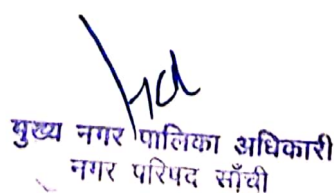 मुख्य नगर पालिका अधिकारी
नगर परिषद साँची